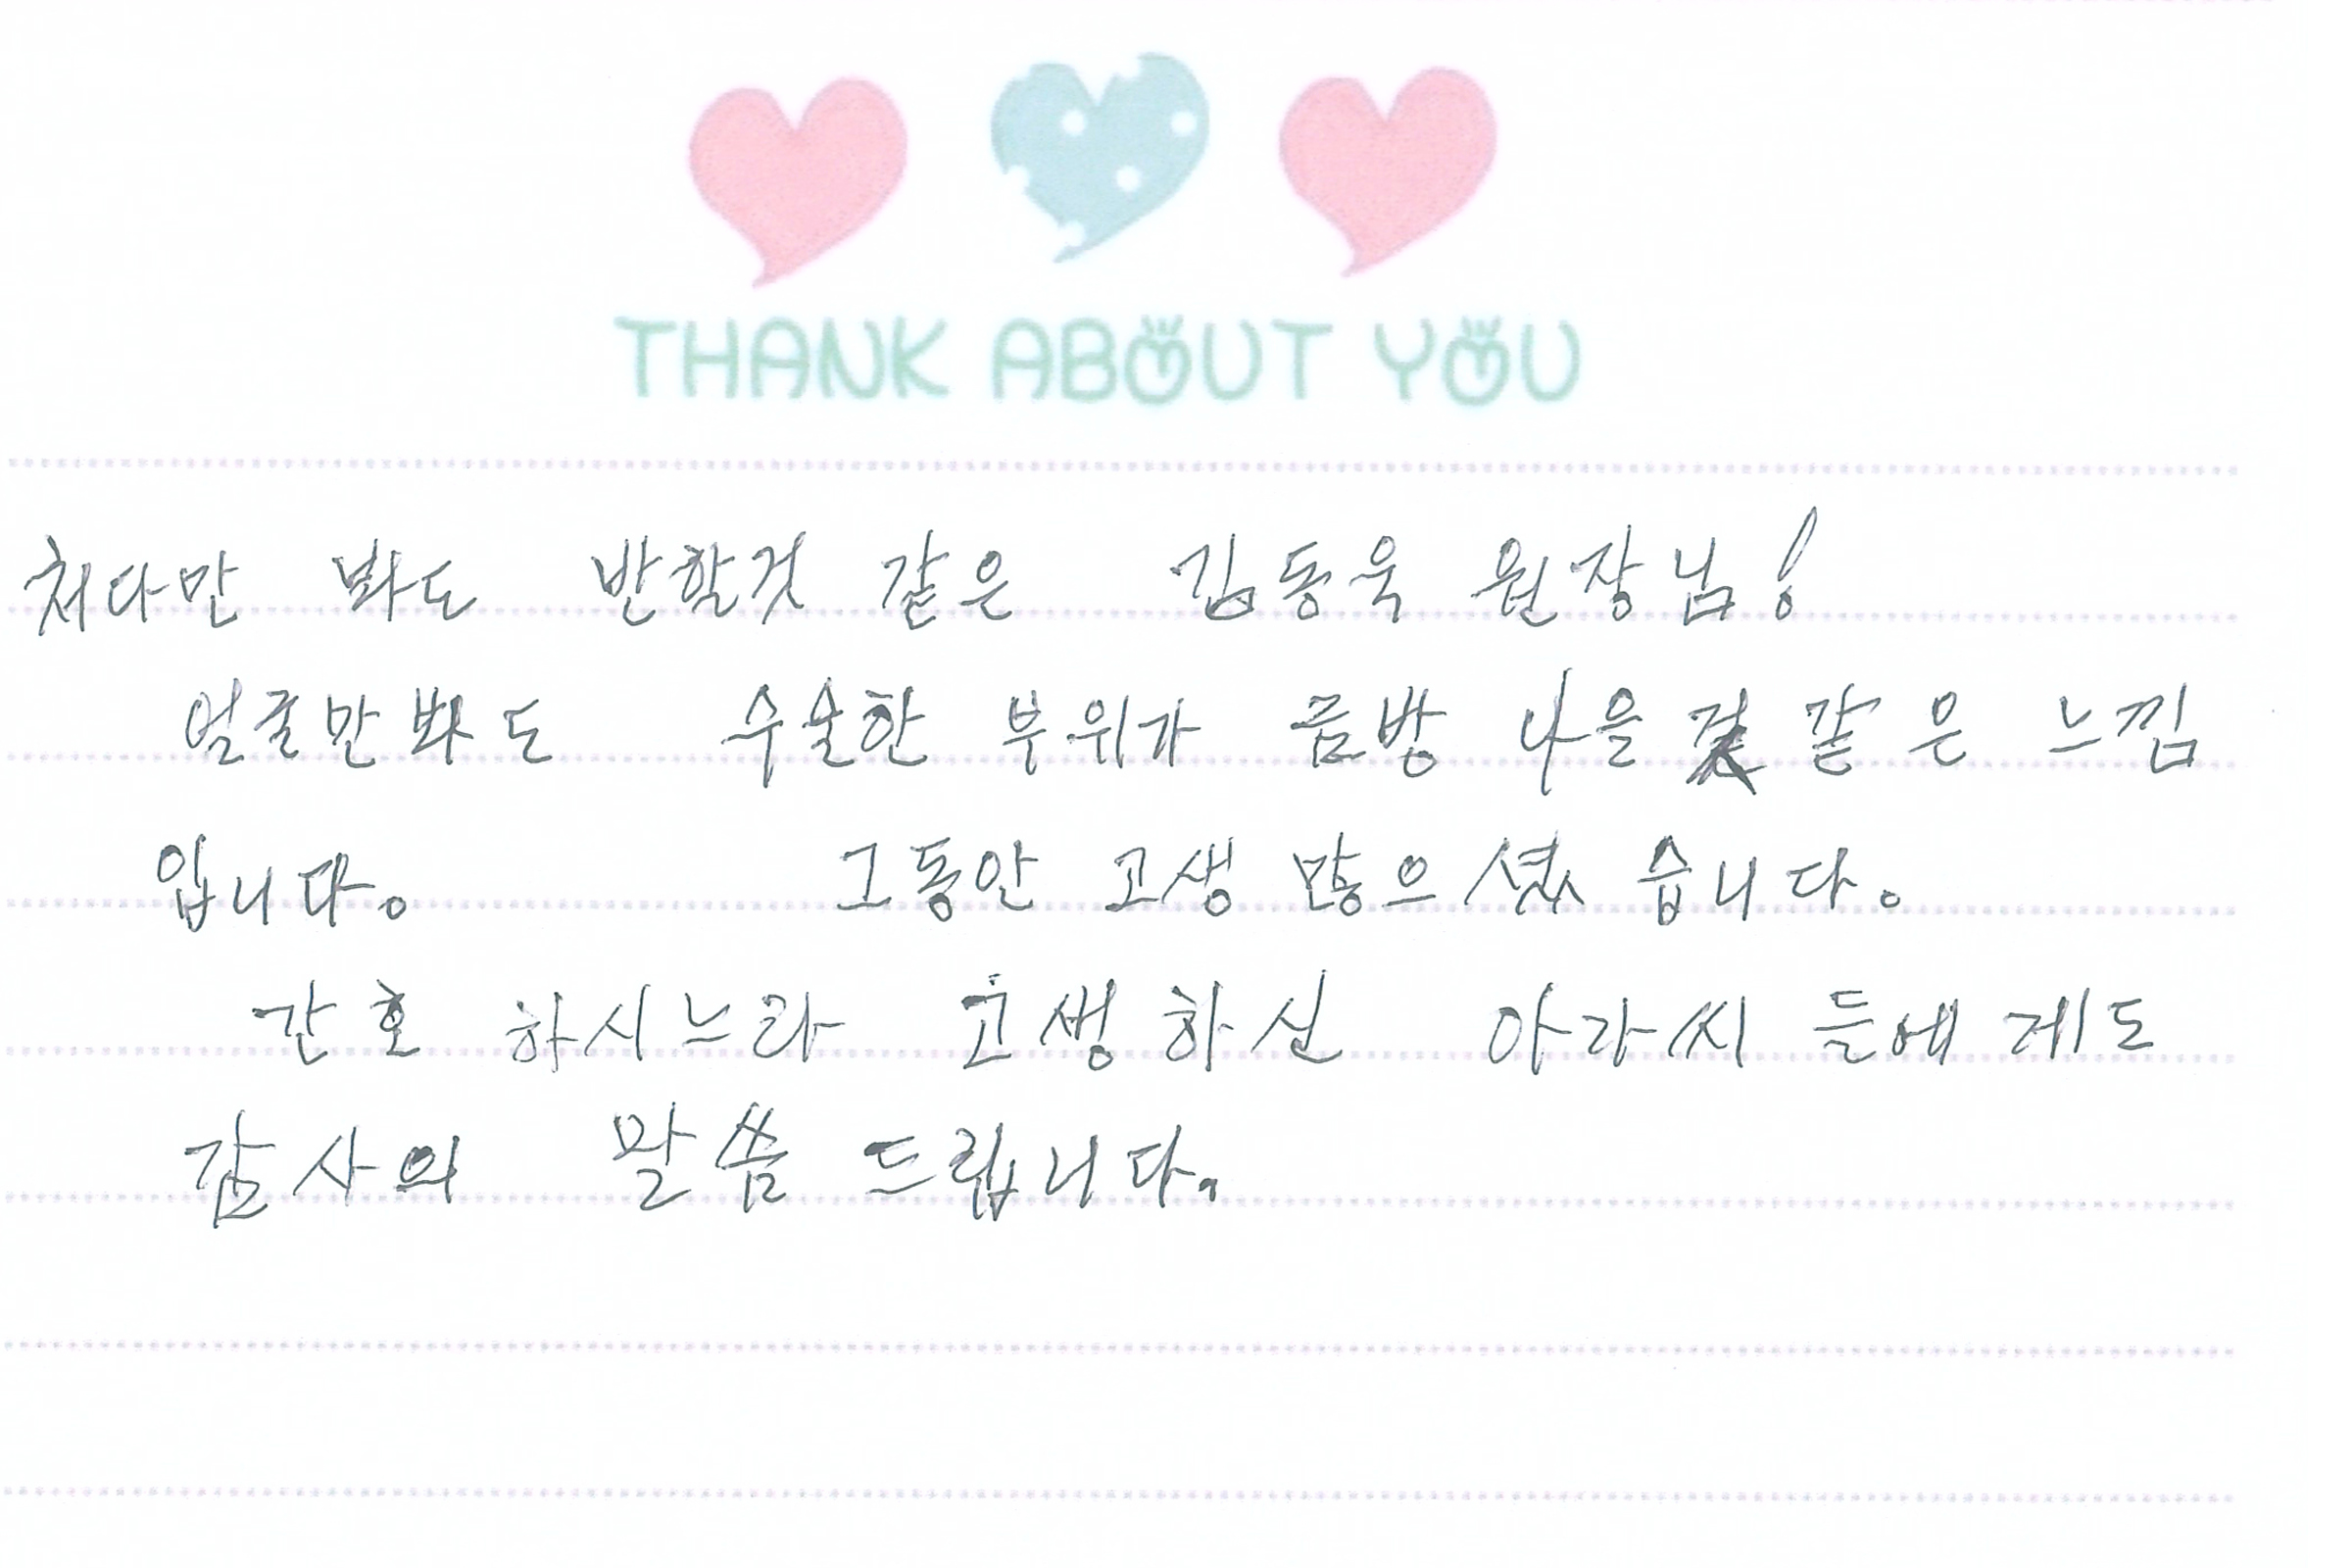 THANK ABOUT YOU
처다만 봐도 반할것 같은 김동욱 원장님!
얼굴만 봐도 수술한 부위가 금방 나을것 같은 느낌
입니다. 그동안 고생 많으셨습니다.
간호 하시느라 고생하신 아가씨들에게도
감사의 말씀 드립니다.